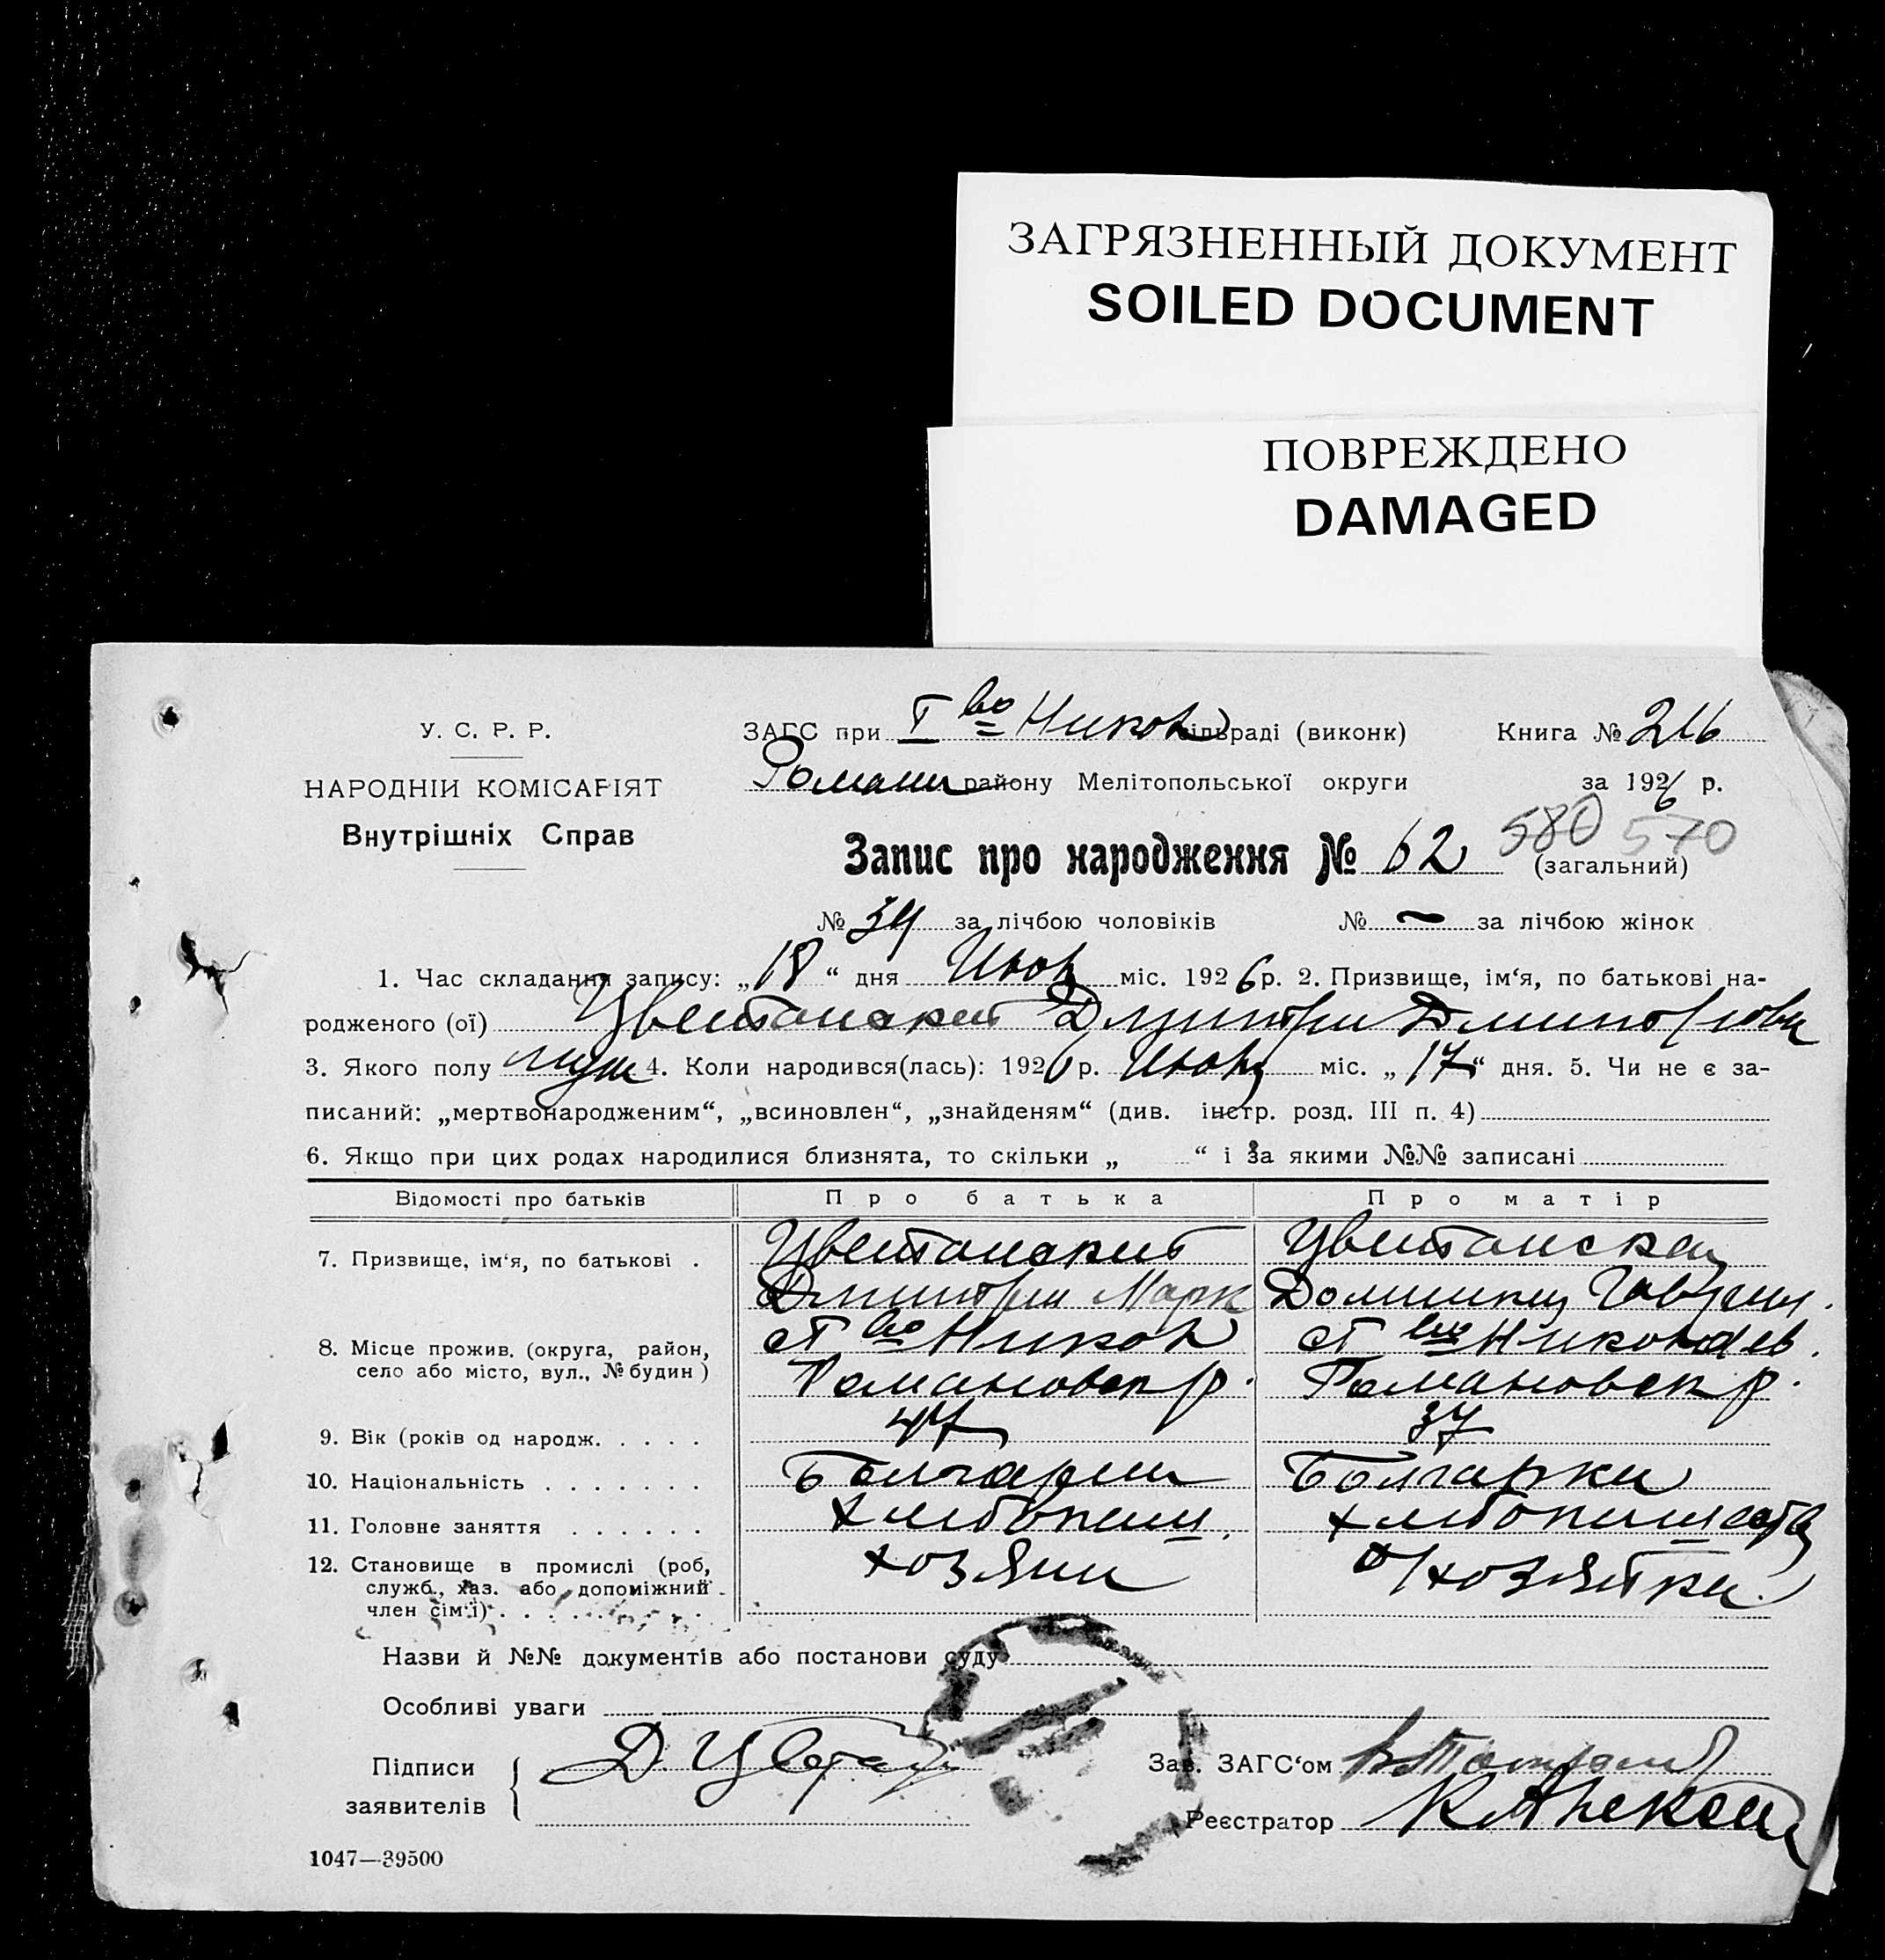 ЗАГРЯЗНЕННЫЙ ДОКУМЕНТ
SOILED DOCUMENT
ПОВРЕЖДЕНО
DAMAGED
У. С. Р. Р.
НАРОДНІЙ КОМІСАРІЯТ
Внутрішніх Справ
ЗАГС при I во Никол сільраді (виконк)
Роман району Мелітопольської округи
Книга № 216
за 1926 р.
Запис про народження № 62 580 570
(загальний)
№ 34 за лічбою чоловіків № — за лічбою жінок
1. Час складання запису: „18“ дня Июня міс. 1926 р. 2. Призвище, ім‘я, по батькові на-
родженого (ої) Цветанский Дмитрий Дмитриови
3. Якого полу муж 4. Коли народився(лась): 1926 р. Июня міс. „17“ дня. 5. Чи не є за-
писаний: „мертвонародженим“, „всиновлен“, „знайденям“ (див. інстр. розд. III п. 4)
6. Якщо при цих родах народилися близнята, то скільки „ “ і за якими №№ записані
Відомості про батьків Про батька Про матір
7. Призвище, ім‘я, по батькові . Цветанский Цветанская
Дмитрий Марк Доминия Гаврил.
8. Місце прожив. (округа, район, I во Никол I во Николаев.
село або місто, вул., № будин) Романовск р. Романовск р.
9. Вік (років од народж. . . . . 47 37
10. Національність . . . . . . . Болгарин Болгарка
11. Головне заняття . . . . . . хлебопаш. хлебопашество
12. Становище в промислі (роб, хозяин д/хозяйка.
служб., хаз. або допоміжний
член сім‘ї) . . . . . . . . .
Назви й №№ документів або постанови суду
Особливі уваги
Підписи
заявителів
Д. Цвета
Зав. ЗАГС‘ом
Реєстратор К. Алексеи
1047—39500